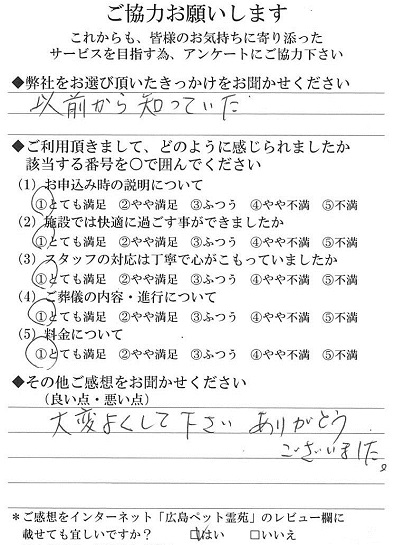 ご協力お願いします
これからも、皆様のお気持ちに寄り添った
サービスを目指す為、アンケートにご協力下さい
◆弊社をお選び頂いたきっかけをお聞かせください
以前から知っていた
◆ご利用頂きまして、どのように感じられましたか
該当する番号を〇で囲んでください
(1) お申込み時の説明について
①とても満足 ②やや満足 ③ふつう ④やや不満 ⑤不満
(2) 施設では快適に過ごす事ができましたか
①とても満足 ②やや満足 ③ふつう ④やや不満 ⑤不満
(3) スタッフの対応は丁寧で心がこもっていましたか
①とても満足 ②やや満足 ③ふつう ④やや不満 ⑤不満
(4) ご葬儀の内容・進行について
①とても満足 ②やや満足 ③ふつう ④やや不満 ⑤不満
(5) 料金について
①とても満足 ②やや満足 ③ふつう ④やや不満 ⑤不満
◆その他ご感想をお聞かせください
(良い点・悪い点)
大変よくして下さい ありがとう
ございました。
*ご感想をインターネット「広島ペット霊苑」のレビュー欄に
載せても宜しいですか? ☑はい □いいえ